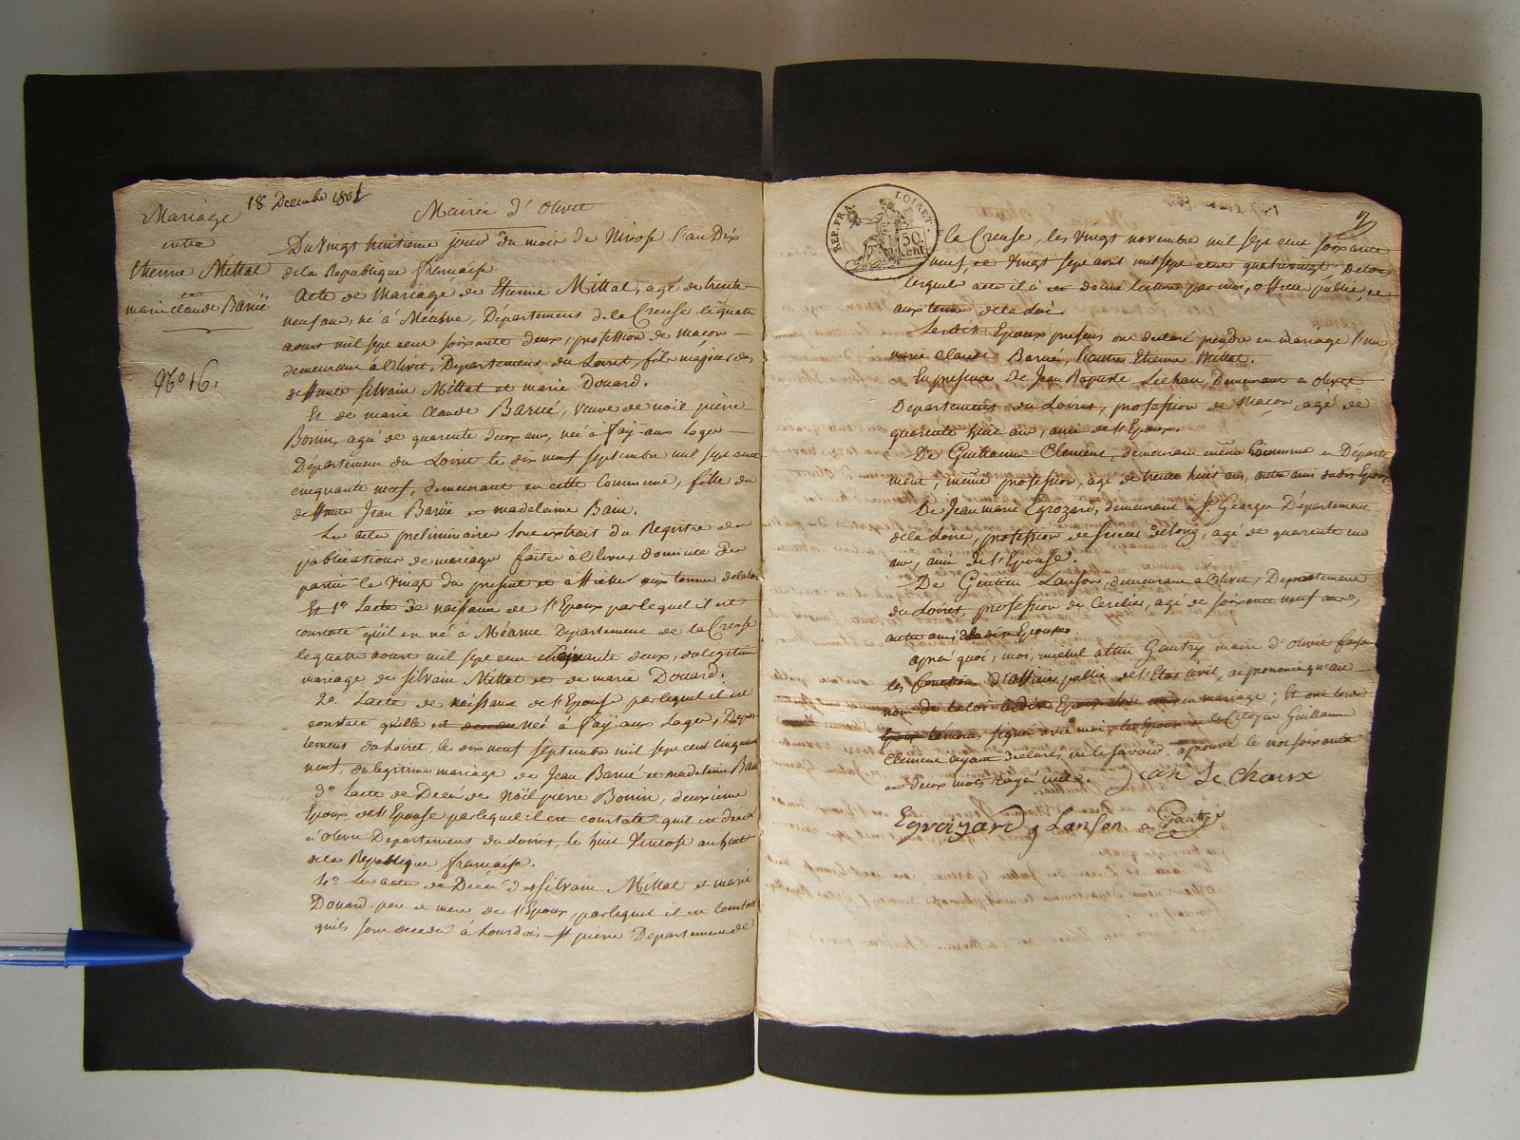 18 Decembre 1801
Mairie d'Olivet
Mariage
entre
Etienne Mittat
et
marie claude Barué
N.º 16.
Du vingt huitieme jour du mois de Nivose l'an Dix
de la Republique française
Acte de Mariage de Etienne Mittat, agé de trente
neuf ans, né à Méasne, Departement de la Creuse le quatre
aoust mil sept cent soixante deux, profession de maçon
demeurant à Olivet, Departement du Loiret, fils majeur de
deffunts silvain Mittat et marie Douard.
Et de marie Claude Barué, veuve de noël pierre
Bonin, agée de quarente deux ans, née à fay aux loges
Département du Loiret le dix neuf septembre mil sept cent
cinquante neuf, demeurant en cette Commune, fille de
deffunts Jean Barué et madelaine Bain.
Les actes preliminaires sont extrait du Registre des
publications de mariage faites à Olivet
le vingt du present et affichés aux termes de la loi
Et 1º Lacte de naissance de l'Epoux par lequel il est
constaté qu'il est né à Méasne Departement de la Creuse
le quatre aoust mil sept cent soixante deux, du legitime
mariage de silvain Mittat et de marie Douard.
2º Lacte de naissance de l'Epouse par lequel il est
constaté qu'elle est née à fay aux Loges, Depar-
tement du Loiret, le dix neuf septembre mil sept cent cinquante
neuf, du legitime mariage de Jean Barué et madelaine Bain
3º Lacte de Decés de Noël pierre Bonin, deuxieme
Epoux de l'Epouse par lequel il est constaté qu'il est décédé
à Olivet Departement du Loiret, le huit Nivose an huit
de la République française.
4º Les actes de Decés de silvain Mittat et marie
Douard pere et mere de l'Epoux, par lequel il est constaté
qu'ils sont décedés à Lourdoi St pierre Departement de
REP. FRA. LOIRET.
50 Cent
la Creuse, les vingt novembre mil sept cent soixante
neuf et vingt sept avril mil sept cent quatrevingt
lesquels actes il à été donné lecture par moi, officier public, et
aux termes de la Loi.
Lesdits Epoux presens ont declaré prendre en Mariage l'une
marie Claude Barué, l'autre Etienne Mittat.
En presence De Jean Baptiste Lechau, Demeurant à Olivet
Departement du Loiret, profession de Maçon, agé de
quarente huit ans, ami de l'Epoux.
De Guillaume Clement, demeurant même commune et Departe
ment, même profession, agé de trente huit ans, autre ami dudit Epoux
De Jean marie Egrozard, demeurant à St Georges Département
de la Loire, profession de sieur de long, agé de quarente un
ans, ami de l'Epouse.
De Lanson, demeurant à Olivet, Departement
du Loiret, profession de Cerclier, agé de soixante neuf ans,
autre ami de ladite Epouse
après quoi, moi, michel Gautry maire d'Olivet faisant
les fonctions d'officier public de l'Etat civil, ai prononcé qu'au
nom de la loi en mariage; Et ont lesdits
signé avec moi, le Citoyen Guillaume
Clement ayant declaré ne le savoir. approuvé le mot soixante
deux mots rayé nuls. Jean Le Choux
Egrozard Lanson Gautry